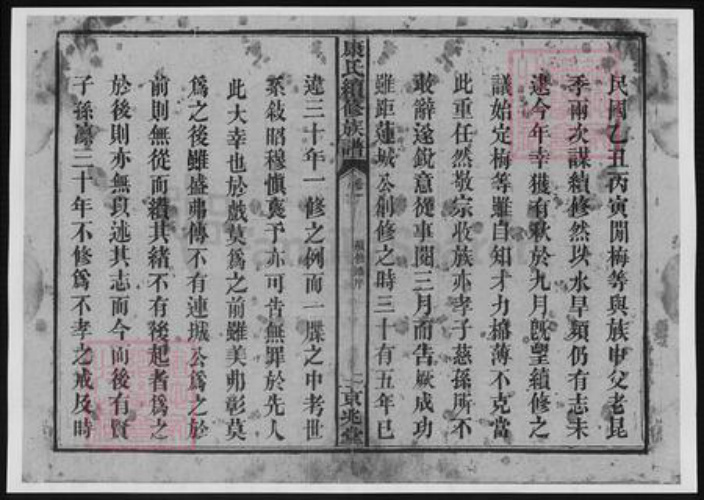 民國乙丑丙寅間梅等與族中父老昆
季兩次謀續修然以水旱頻仍有志未
逮今年幸獲有秋於九月既望續修之
議始定梅等雖自知才力棉薄不克當
此重任然敬宗收族亦孝子慈孫所不
敢辭遂銳意從事閱三月而告厥成功
雖距蓮城公創修之時三十有五年已
康氏續修族譜
卷一
京兆堂
違三十年一修之例而一牒之中考世
系敍昭穆慎褒予亦可告無罪於先人
此大幸也於戲莫爲之前雖美弗彰莫
爲之後雖盛弗傳不有連城公爲之於
前則無從而續其緒不有後起者爲之
於後則亦無以述其志而今而後有賢
子孫凜三十年不修爲不孝之戒及時